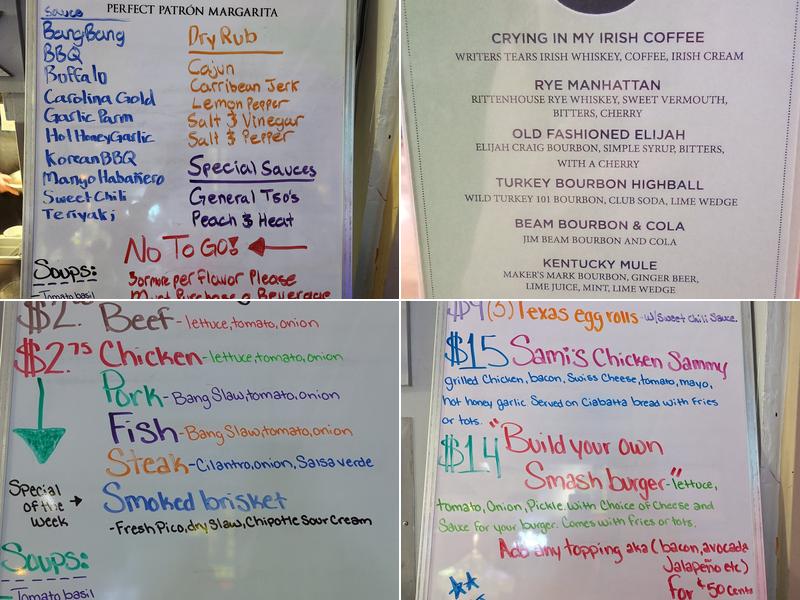 PERFECT PATRÓN MARGARITA
Sauces
BangBang
BBQ
Buffalo
Carolina Gold
Garlic Parm
Hot Honey Garlic
Korean BBQ
Mango Habañero
Sweet Chili
Teriyaki
Dry Rub
Cajun
Carribean Jerk
Lemon Pepper
Salt & Vinegar
Salt & Pepper
Special Sauces
General Tso's
Peach & Heat
No To GO!
3 or more per flavor Please
Must Purchase a Beverage
Soups:
- Tomato basil
CRYING IN MY IRISH COFFEE
WRITERS TEARS IRISH WHISKEY, COFFEE, IRISH CREAM
RYE MANHATTAN
RITTENHOUSE RYE WHISKEY, SWEET VERMOUTH,
BITTERS, CHERRY
OLD FASHIONED ELIJAH
ELIJAH CRAIG BOURBON, SIMPLE SYRUP, BITTERS,
WITH A CHERRY
TURKEY BOURBON HIGHBALL
WILD TURKEY 101 BOURBON, CLUB SODA, LIME WEDGE
BEAM BOURBON & COLA
JIM BEAM BOURBON AND COLA
KENTUCKY MULE
MAKER'S MARK BOURBON, GINGER BEER,
LIME JUICE, MINT, LIME WEDGE
$2. Beef - lettuce, tomato, onion
$2.75 Chicken - lettuce, tomato, onion
Pork - Bang Slaw, tomato, onion
Fish - Bang Slaw, tomato, onion
Steak - Cilantro, onion, Salsa verde
Special of the week
Smoked brisket
- Fresh Pico, dry Slaw, Chipotle Sour Cream
Soups:
- Tomato basil
$9 (3) Texas egg rolls - w/ Sweet Chili Sauce.
$15 Sami's Chicken Sammy
grilled Chicken, bacon, Swiss Cheese, tomato, mayo,
hot honey garlic Served on Ciabatta bread with Fries
or tots.
$14 "Build your own
Smash burger" - lettuce,
tomato, Onion, Pickle. With Choice of Cheese and
Sauce for your burger. Comes with Fries or tots.
Add any topping aka (bacon, avocado
Jalapeño etc)
For $.50 Cents